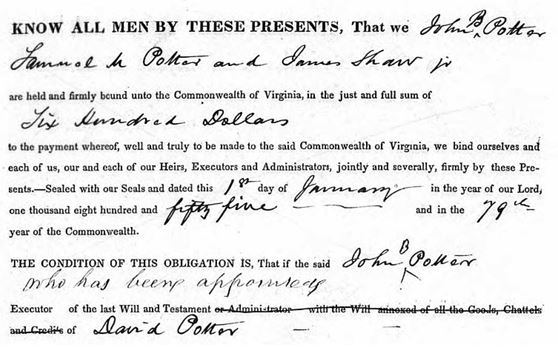 KNOW ALL MEN BY THESE PRESENTS, That we John B Potter
Samuel M Potter and James Shaw jr
are held and firmly bound unto the Commonwealth of Virginia, in the just and full sum of
Six Hundred Dollars
to the payment whereof, well and truly to be made to the said Commonwealth of Virginia, we bind ourselves and
each of us, our and each of our Heirs, Executors and Administrators, jointly and severally, firmly by these Pre-
sents.—Sealed with our Seals and dated this 1st day of January in the year of our Lord,
one thousand eight hundred and fifty five and in the 79th
year of the Commonwealth.
THE CONDITION OF THIS OBLIGATION IS, That if the said John B Potter
who has been appointed
Executor of the last Will and Testament or Administrator with the Will annexed of all the Goods, Chattels
and Credits of David Potter